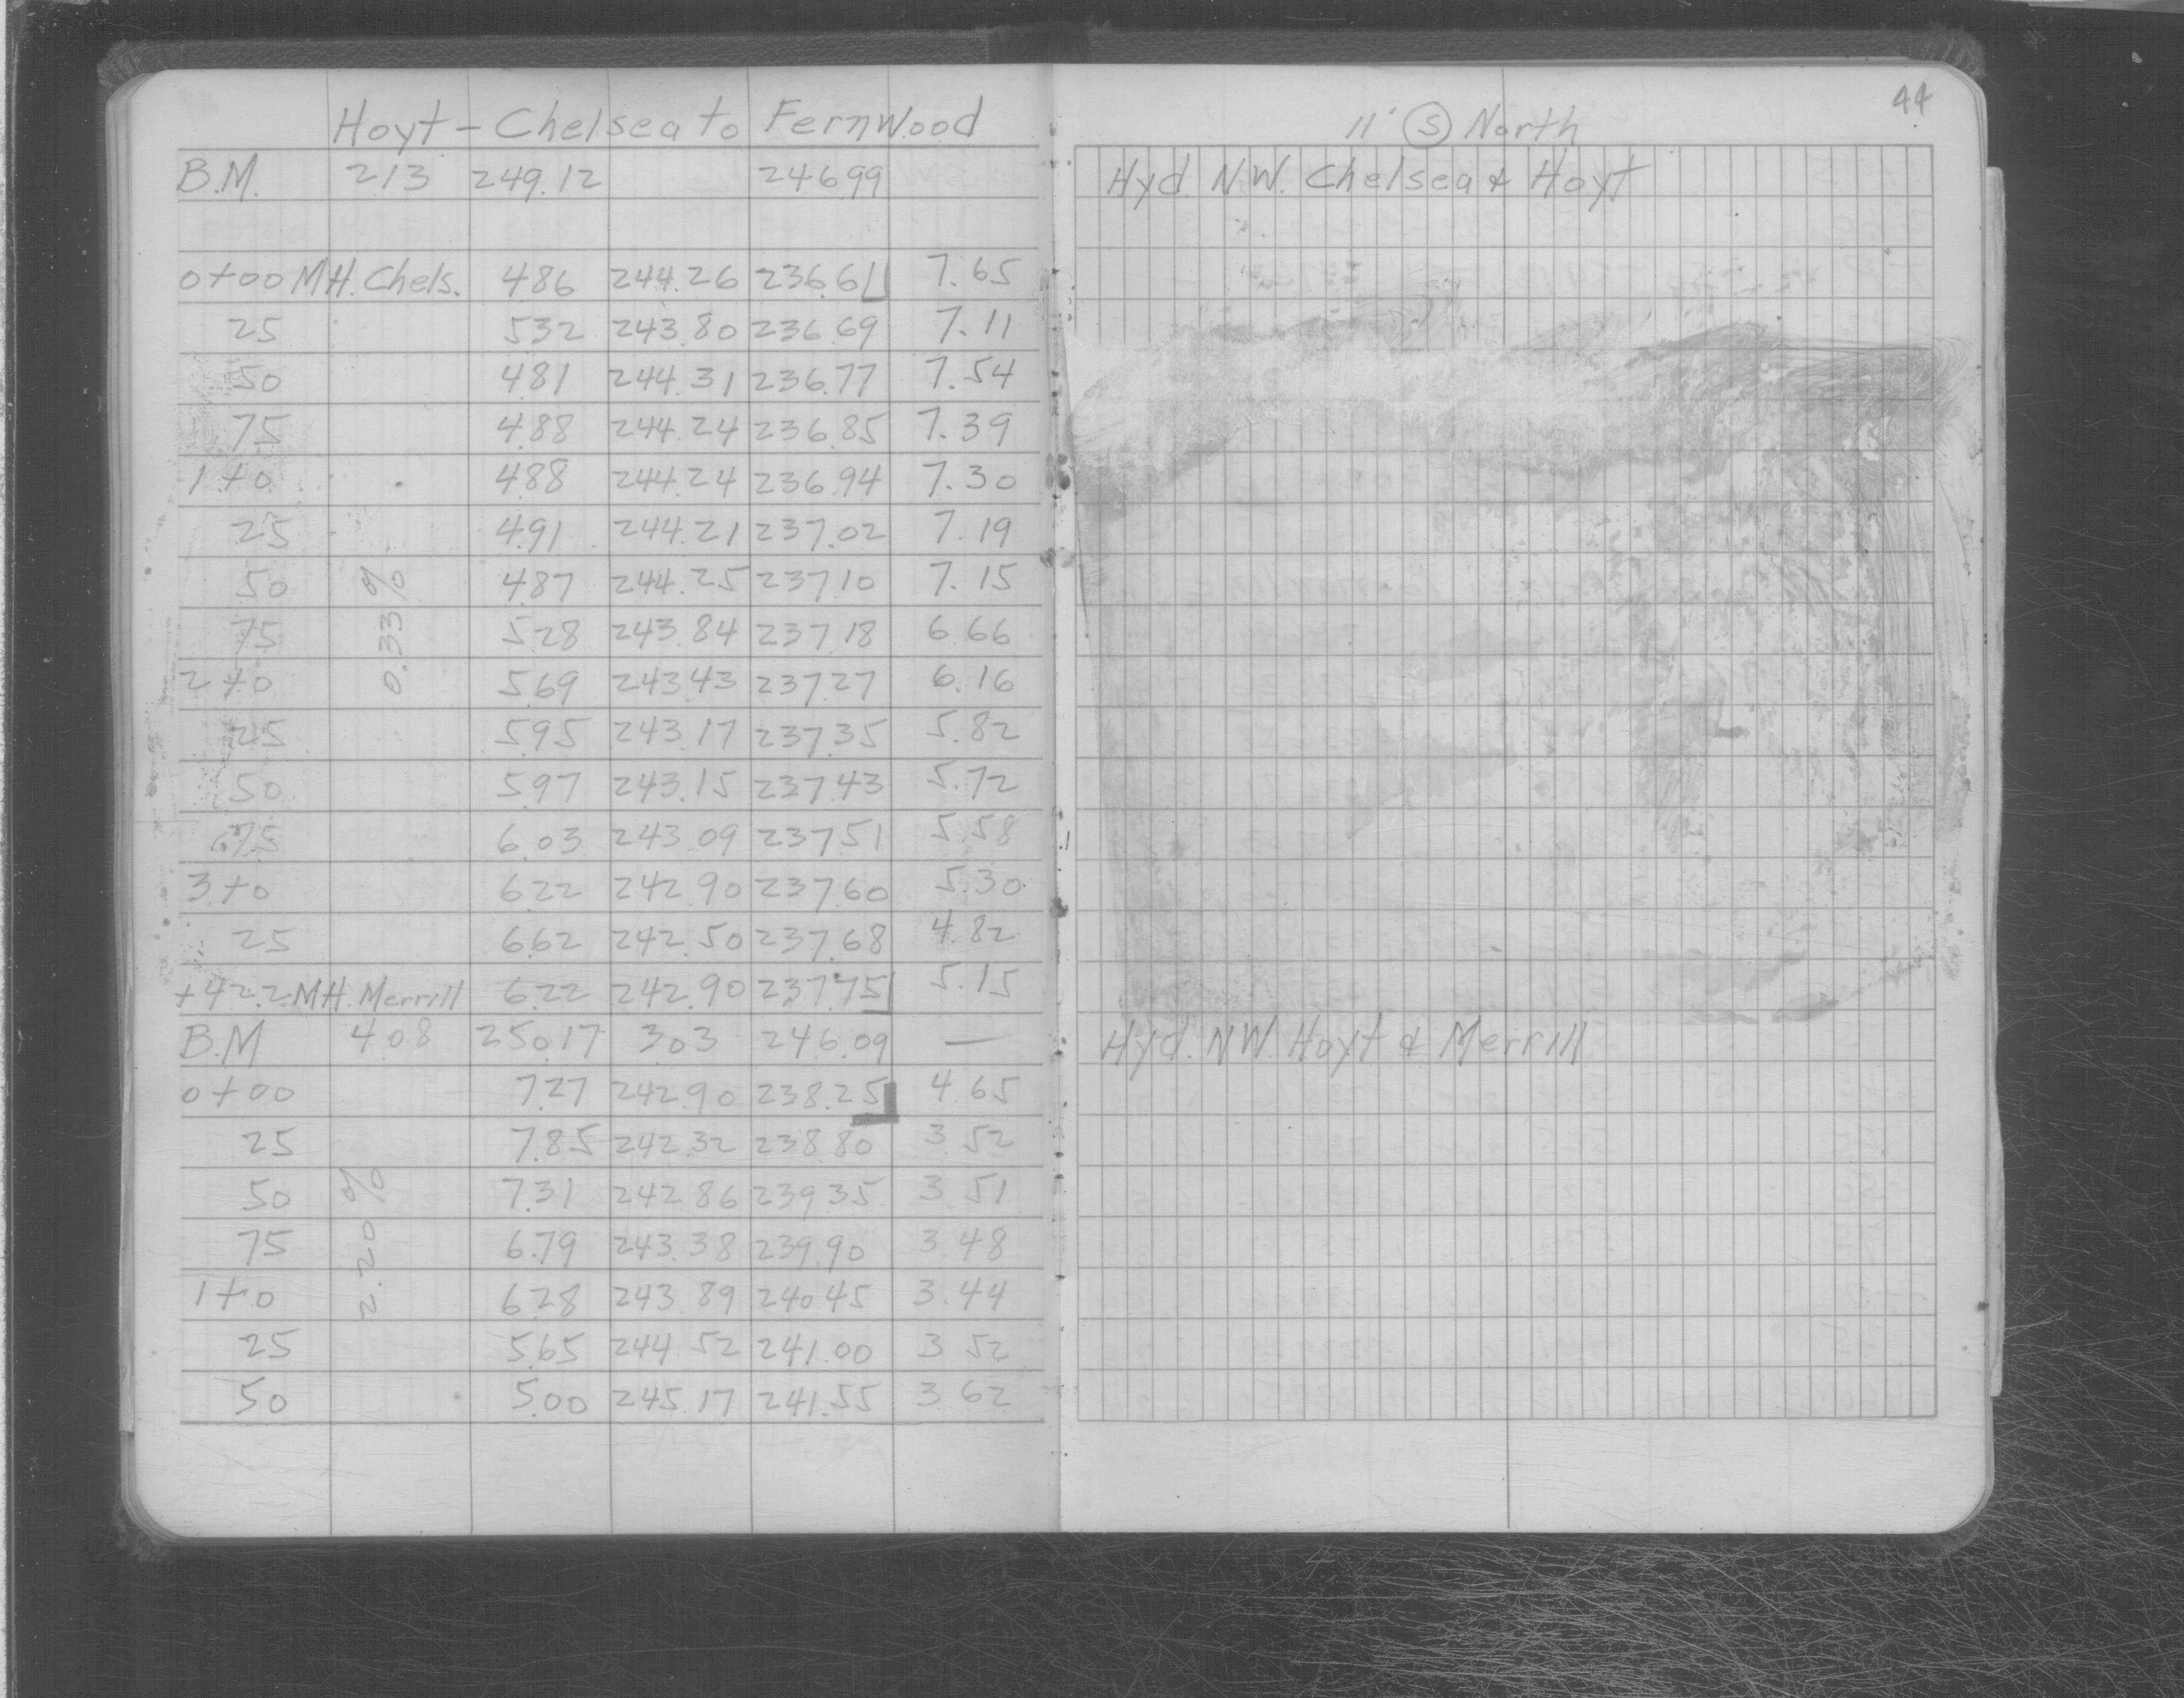 Hoyt - Chelsea to Fernwood
B.M. 213 249.12 246.99
0+00 MH. Chels. 486 244.26 236.61 7.65
25 532 243.80 236.69 7.11
50 481 244.31 236.77 7.54
75 488 244.24 236.85 7.39
1+0 488 244.24 236.94 7.30
25 491 244.21 237.02 7.19
50 487 244.25 237.10 7.15
75 528 243.84 237.18 6.66
0.33%
2+0 569 243.43 237.27 6.16
25 595 243.17 237.35 5.82
50 597 243.15 237.43 5.72
75 6.03 243.09 237.51 5.58
3+0 622 242.90 237.60 5.30
25 662 242.50 237.68 4.82
+42.2 MH. Merrill 6.22 242.90 237.75 5.15
B.M 408 250.17 303 246.09 —
0+00 7.27 242.90 238.25 4.65
25 7.85 242.32 238.80 3.52
50 7.31 242.86 239.35 3.51
75 6.79 243.38 239.90 3.48
2.20%
1+0 628 243.89 240.45 3.44
25 565 244.52 241.00 3.52
50 5.00 245.17 241.55 3.62
44
11' (S) North
Hyd NW. Chelsea & Hoyt
Hyd. NW. Hoyt & Merrill